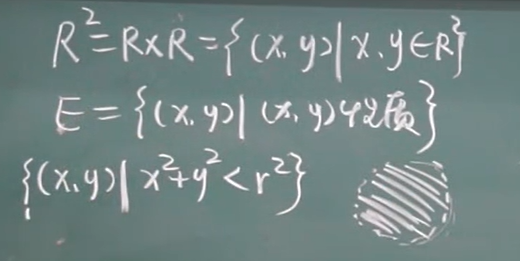 R²=R×R={(x,y)|x,y∈R²}
E={(x,y)|(x,y)性质}
{(x,y)|x²+y²<r²}